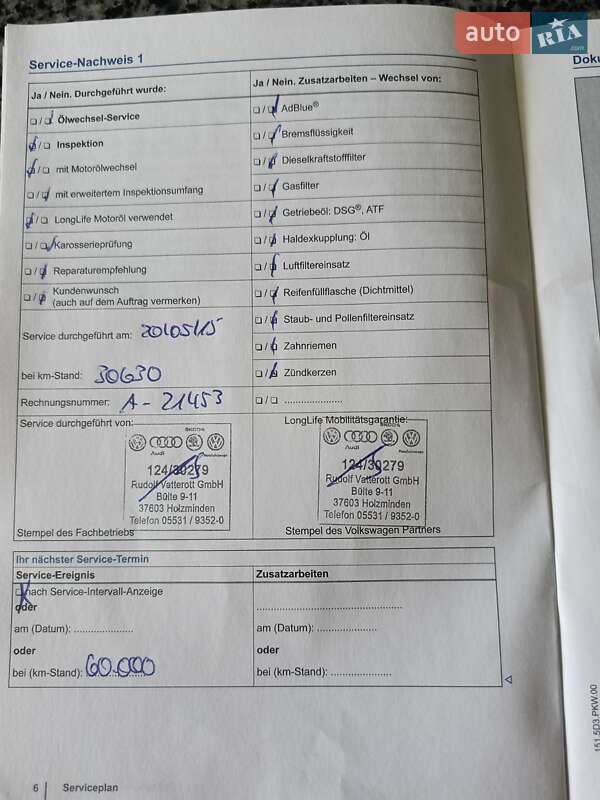 auto RIA .com
Service-Nachweis 1
Doku
Ja / Nein. Durchgeführt wurde:
Ja / Nein. Zusatzarbeiten – Wechsel von:
☐/☐ Ölwechsel-Service
☐/☐ AdBlue®
☐/☐ Inspektion
☐/☐ Bremsflüssigkeit
☐/☐ mit Motorölwechsel
☐/☐ Dieselkraftstofffilter
☐/☐ mit erweitertem Inspektionsumfang
☐/☐ Gasfilter
☐/☐ LongLife Motoröl verwendet
☐/☐ Getriebeöl: DSG®, ATF
☐/☐ Karosserieprüfung
☐/☐ Haldexkupplung: Öl
☐/☐ Reparaturempfehlung
☐/☐ Luftfiltereinsatz
☐/☐ Kundenwunsch
(auch auf dem Auftrag vermerken)
☐/☐ Reifenfüllflasche (Dichtmittel)
☐/☐ Staub- und Pollenfiltereinsatz
Service durchgeführt am: 20/05/15
☐/☐ Zahnriemen
bei km-Stand: 30630
☐/☐ Zündkerzen
Rechnungsnummer: A-21453
☐/☐ .....................
Service durchgeführt von:
LongLife Mobilitätsgarantie:
Audi
124/30279
Rudolf Vatterott GmbH
Bülte 9-11
37603 Holzminden
Telefon 05531 / 9352-0
Audi
124/30279
Rudolf Vatterott GmbH
Bülte 9-11
37603 Holzminden
Telefon 05531 / 9352-0
Stempel des Fachbetriebs
Stempel des Volkswagen Partners
Ihr nächster Service-Termin
Service-Ereignis
Zusatzarbeiten
☐ nach Service-Intervall-Anzeige
oder
am (Datum): .....................
am (Datum): .....................
oder
oder
bei (km-Stand): 60.000
bei (km-Stand): .....................
151.5D3.PKW.00
6 Serviceplan